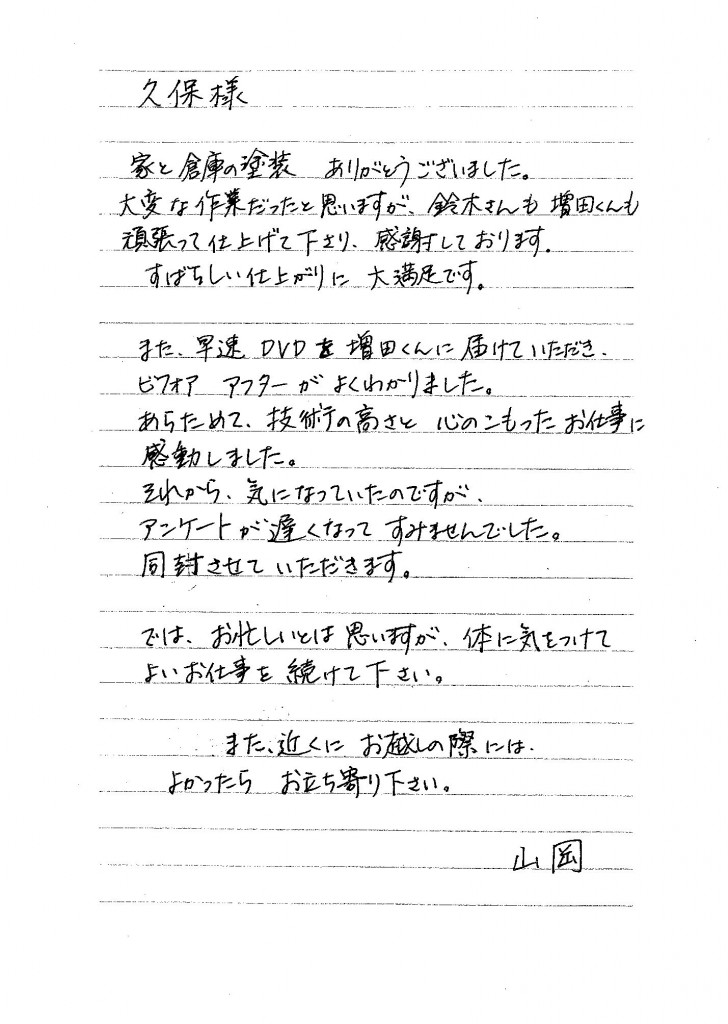 久保様
家と倉庫の塗装　ありがとうございました。
大変な作業だったと思いますが、鈴木さんも 増田くんも
頑張って仕上げて下さり、感謝しております。
すばらしい仕上がりに 大満足です。
また、早速 DVDを増田くんに届けていただき、
ビフォア アフターがよくわかりました。
あらためて、技術の高さと 心のこもったお仕事に
感動しました。
それから、気になっていたのですが、
アンケートが遅くなって すみませんでした。
同封させていただきます。
では、お忙しいとは思いますが、体に気をつけて
よいお仕事を続けて下さい。
また、近くに お越しの際には、
よかったら お立ち寄り下さい。
山岡